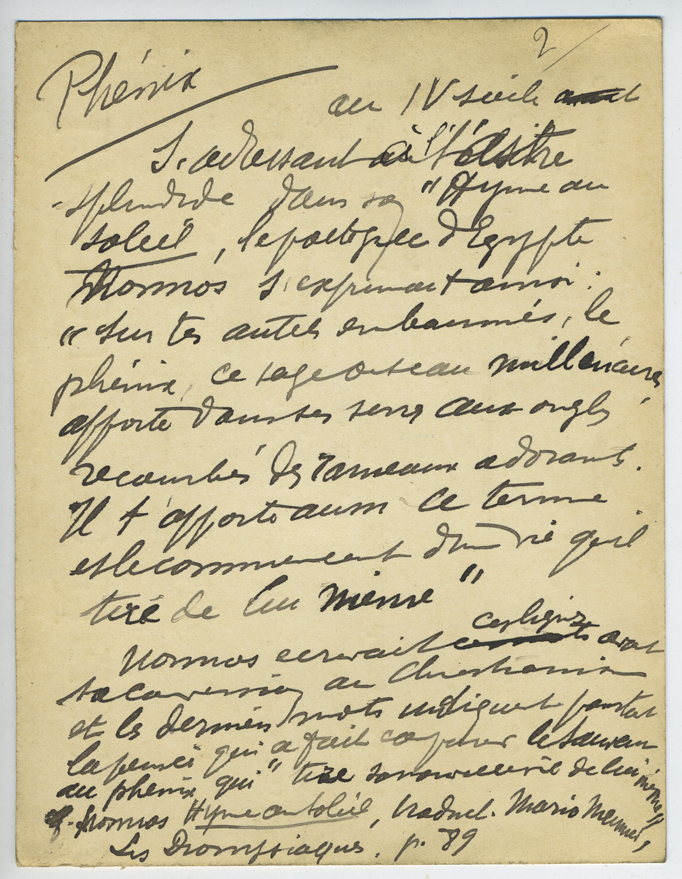 2
Phénix
au IV siècle
S'adressant à l'Astre
splendide dans sa "Hymne au
soleil, le poète grec d'Egypte
Nonnos s'exprimait ainsi :
"Sur tes autels embaumés, le
phénix, ce sage oiseau millénaire,
apporte dans ses serres aux ongles
recourbés des rameaux odorants.
Il t'apporte aussi ce terme
et le commencement d'une vie qu'il
tire de lui même"
Nonnos ecrivait ces lignes avant
sa conversion au Christianisme
et les derniers mots indiquent pourtant
la pensée qui a fait comparer le Sauveur
au phénix qui "tire sa nouvelle vie de lui même"
cf. Nonnos Hymne au Soleil, traduct. Mario Meunier,
Les Dionysiaques. p. 89